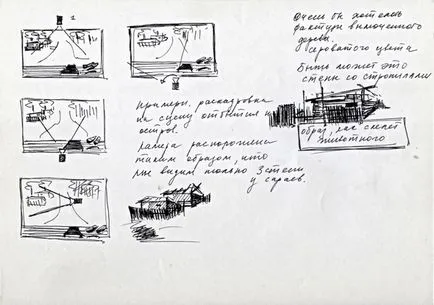 1
Очень бы хотелось
фактуры
дерева,
сероватого цвета
Быть может это
стены со стропилами
Пример, раскадровка
на сцену
остров.
Камера расположена
таким образом, что
мы видим только 3 стены
у сараев.
образ, как скелет
животного